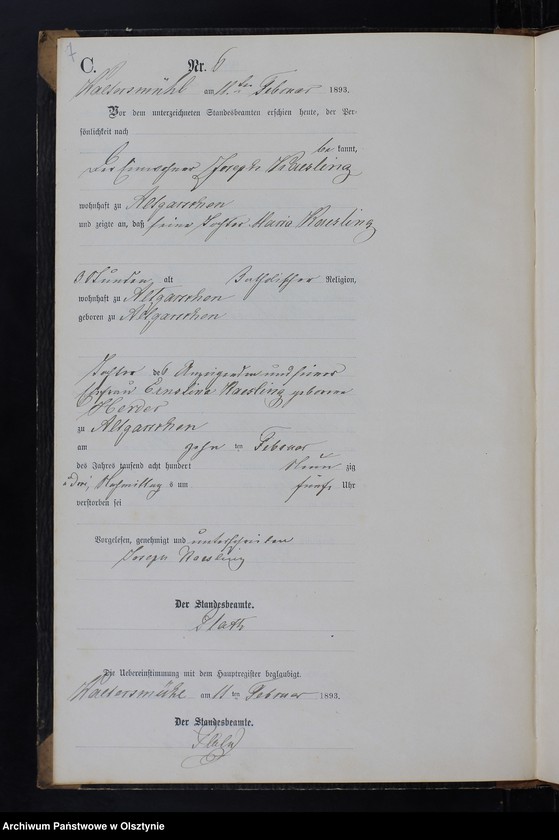 7
C.
Nr. 6
Waltersmühl am 11. ten Februar 1893.
Vor dem unterzeichneten Standesbeamten erschien heute, der Per-
sönlichkeit nach
be kannt,
Der Einwohner Joseph Kaesling
wohnhaft zu Altgarschen
und zeigte an, daß seine Tochter Maria Kaesling
3 Stunden, alt Katholischer Religion,
wohnhaft zu Altgarschen
geboren zu Altgarschen
Tochter des Anzeigenden und seiner
Ehefrau Ernstine Kaesling geborene
Herder
zu Altgarschen
am zehn ten Februar
des Jahres tausend acht hundert Neun zig
u Drei, Nachmittag s um fünf Uhr
verstorben sei
Vorgelesen, genehmigt und unterschrieben
Joseph Kaesling
Der Standesbeamte.
Die Uebereinstimmung mit dem Hauptregister beglaubigt.
Waltersmühl am 11 ten Februar 1893.
Der Standesbeamte.
Archiwum Państwowe w Olsztynie